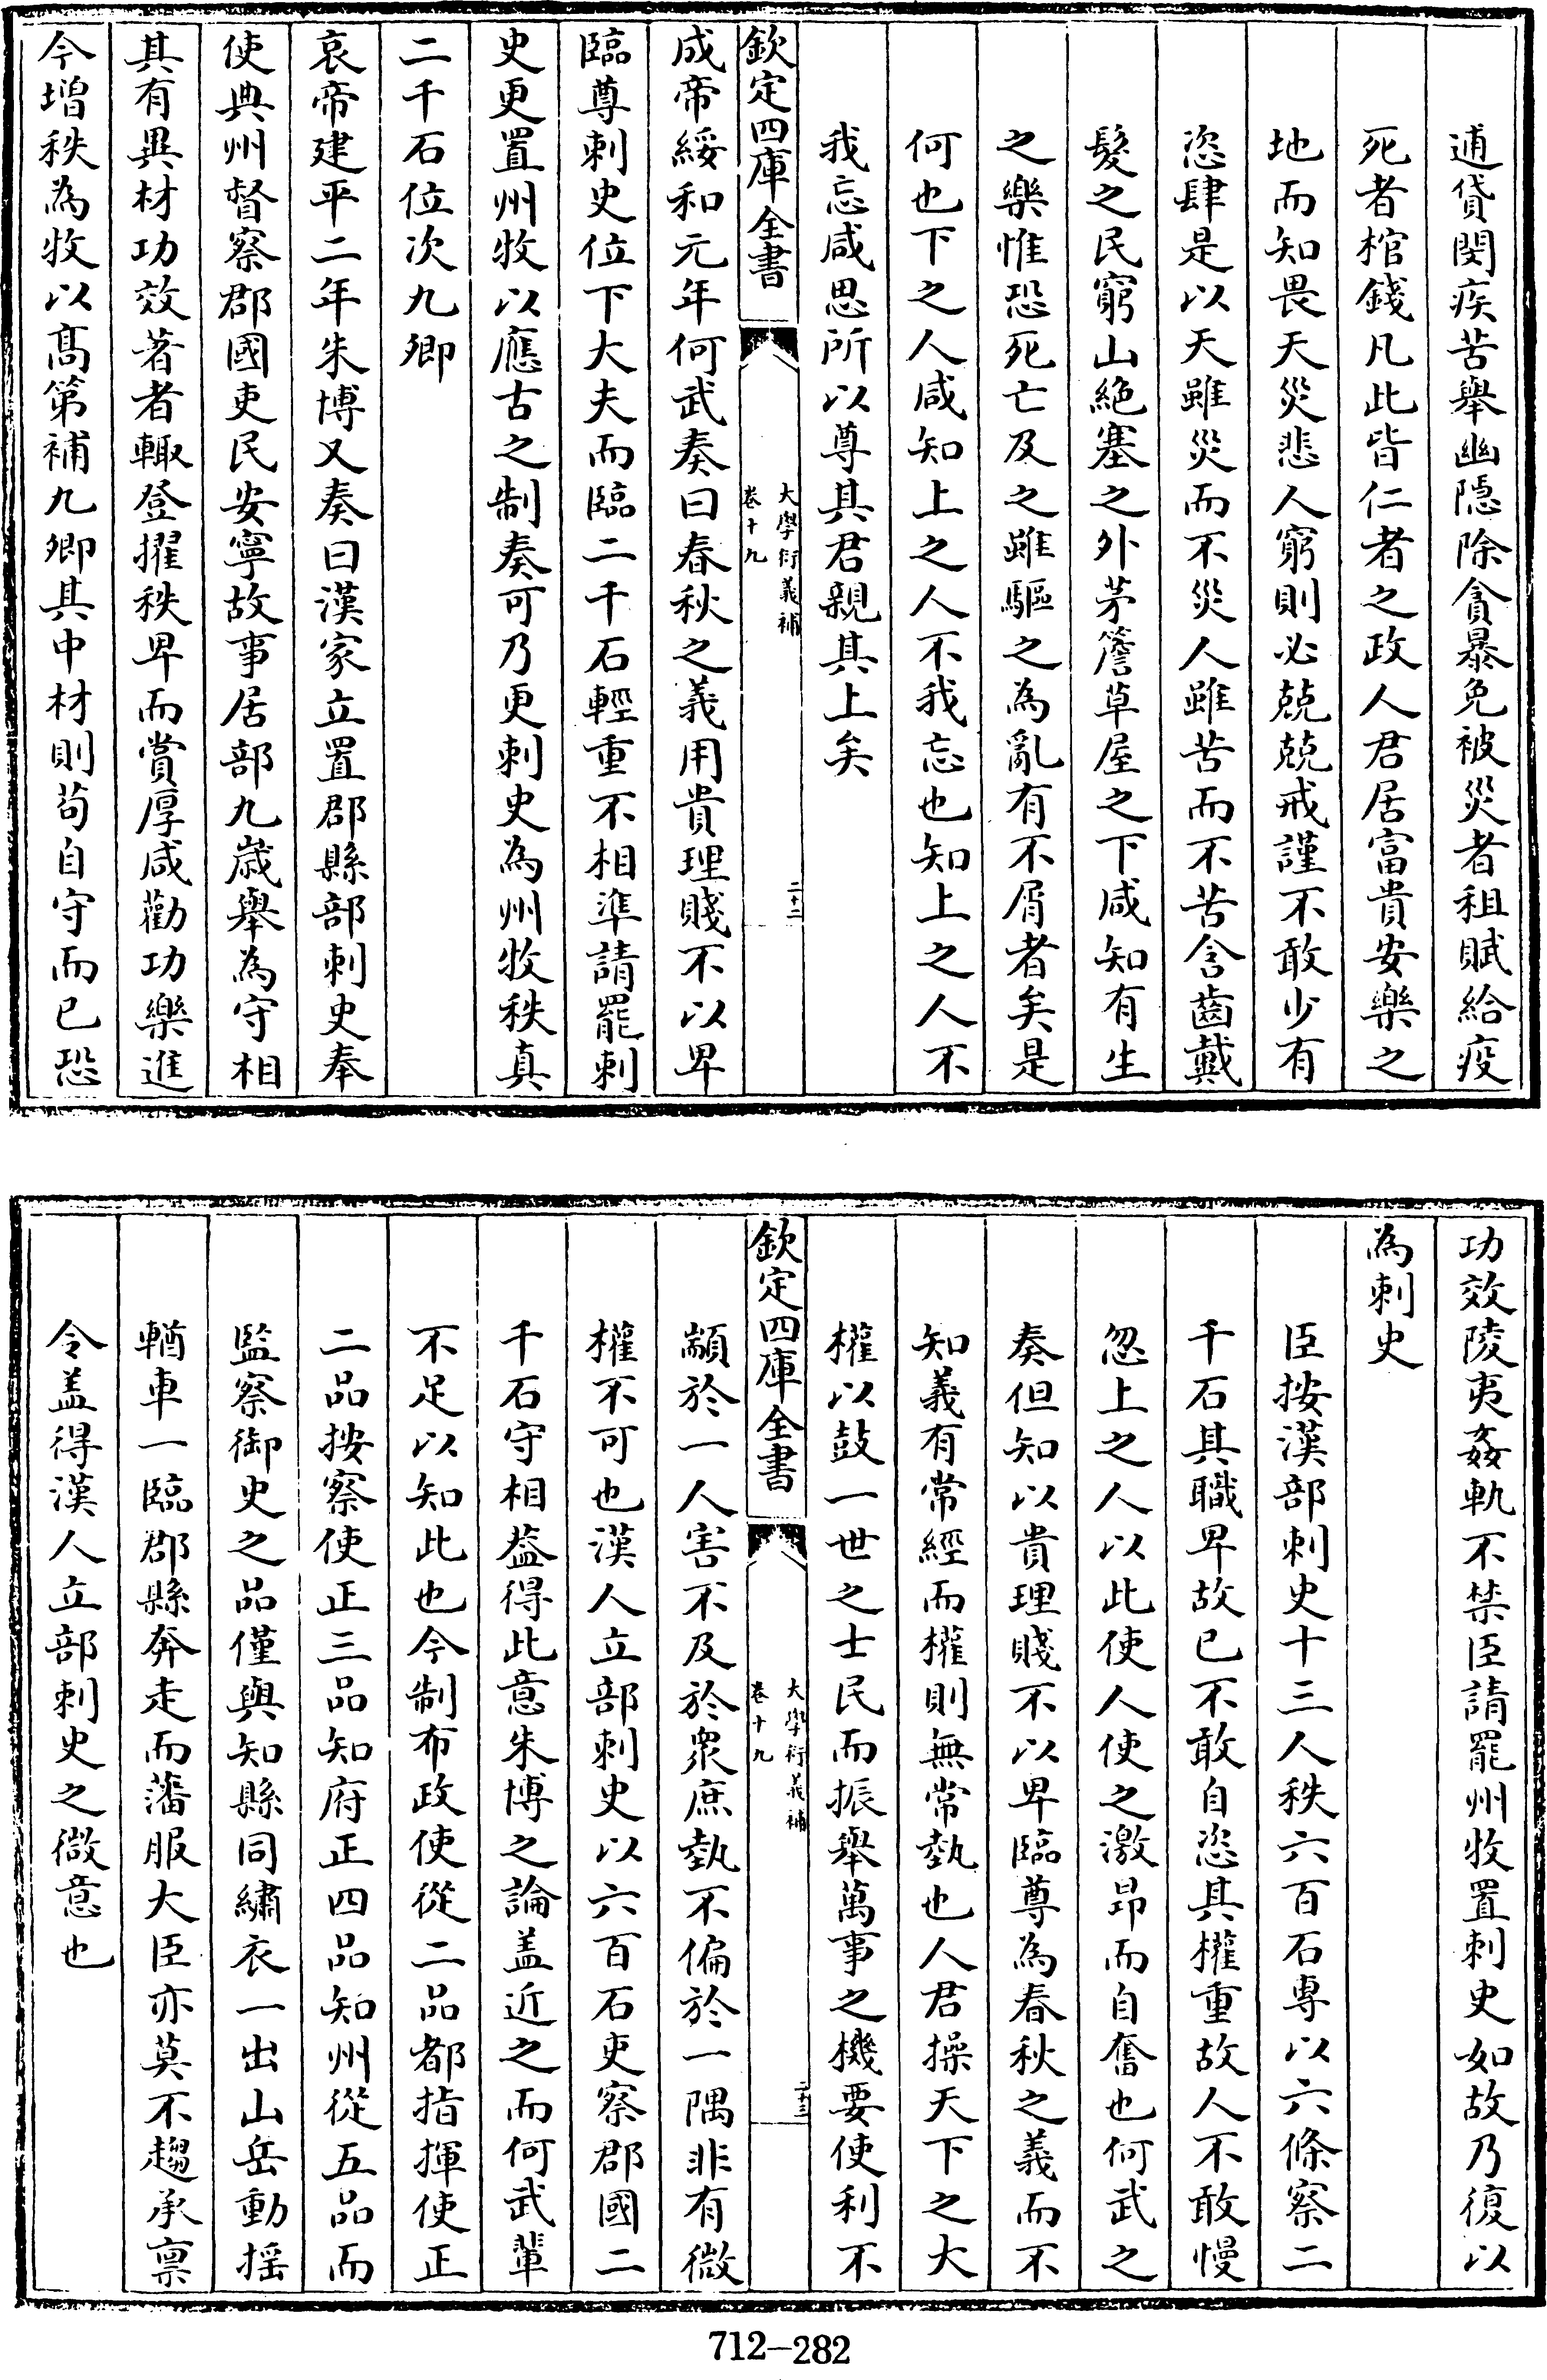 逋貸閔疾苦舉幽隠除貪暴免被災者租賦給疫
死者棺錢凡此皆仁者之政人君居富貴安樂之
地而知畏天災悲人窮則必兢兢戒謹不敢少有
恣肆是以天雖災而不災人雖苦而不苦含齒戴
髮之民窮山絶塞之外茅簷草屋之下咸知有生
之樂惟恐死亡及之雖驅之為亂有不屑者矣是
何也下之人咸知上之人不我忘也知上之人不
我忘咸思所以尊其君親其上矣
欽定四庫全書
大學衍義補
卷十九
二十二
成帝綏和元年何武奏曰春秋之義用貴理賤不以卑
臨尊刺史位下大夫而臨二千石輕重不相準請罷刺
史更置州牧以應古之制奏可乃更刺史為州牧秩真
二千石位次九卿
哀帝建平二年朱博又奏曰漢家立置郡縣部刺史奉
使典州督察郡國吏民安寧故事居部九歲舉為守相
其有異材功效著者輙登擢秩卑而賞厚咸勸功樂進
今增秩為牧以髙第補九卿其中材則苟自守而已恐
功效陵夷姦軌不禁臣請罷州牧置刺史如故乃復以
為刺史
臣按漢部刺史十三人秩六百石専以六條察二
千石其職卑故已不敢自恣其權重故人不敢慢
忽上之人以此使人使之激昂而自奮也何武之
奏但知以貴理賤不以卑臨尊為春秋之義而不
知義有常經而權則無常埶也人君操天下之大
權以鼓一世之士民而振舉萬事之機要使利不
欽定四庫全書
大學衍義補
卷十九
二十三
顓於一人害不及於衆庶埶不偏於一隅非有微
權不可也漢人立部刺史以六百石吏察郡國二
千石守相葢得此意朱博之論盖近之而何武輩
不足以知此也今制布政使從二品都指揮使正
二品按察使正三品知府正四品知州從五品而
監察御史之品僅與知縣同繡衣一出山岳動揺
輶車一臨郡縣奔走而藩服大臣亦莫不趨承禀
令盖得漢人立部刺史之微意也
712-282